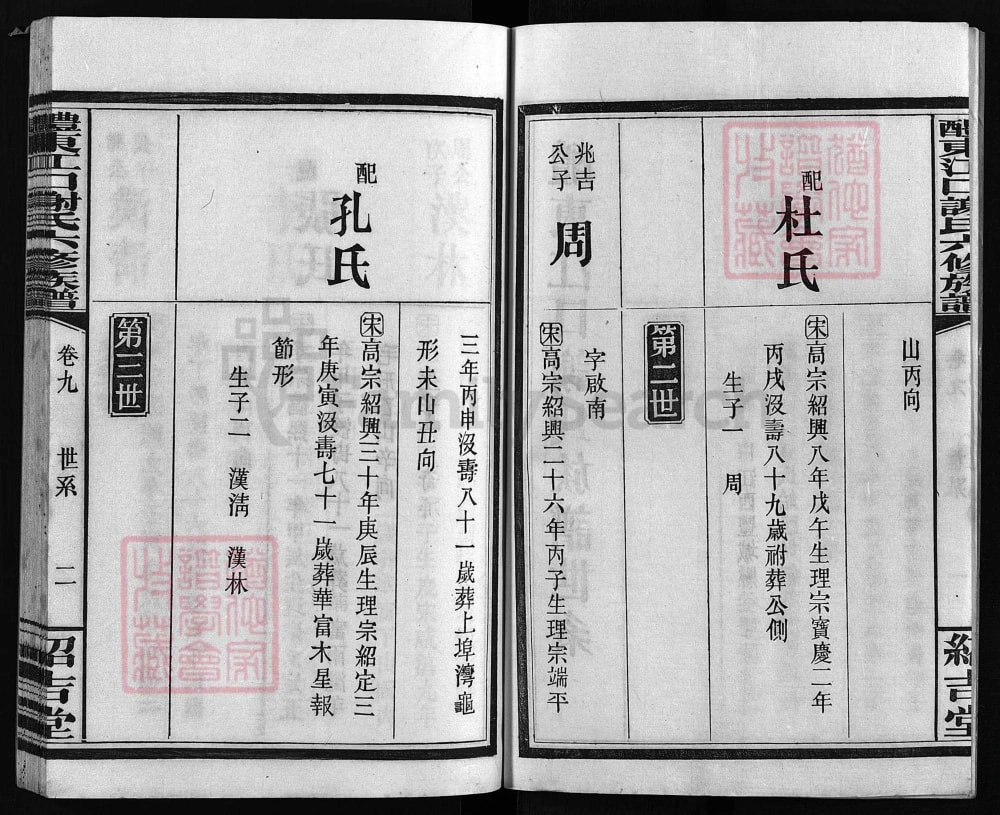 醴東江口謝氏六修族譜
紹吉堂
山丙向
配
杜氏
宋高宗紹興八年戊午生理宗寶慶二年
丙戌沒壽八十九歲祔葬公側
生子一 周
第二世
兆吉
公子
周
字啟南
宋高宗紹興二十六年丙子生理宗端平
三年丙申沒壽八十一歲葬上埠灣龜
形未山丑向
配
孔氏
宋高宗紹興三十年庚辰生理宗紹定三
年庚寅沒壽七十一歲葬華富木星報
節形
生子二 漢淸 漢林
第三世
醴東江口謝氏六修族譜
卷九 世系 二
紹吉堂
FamilySearch